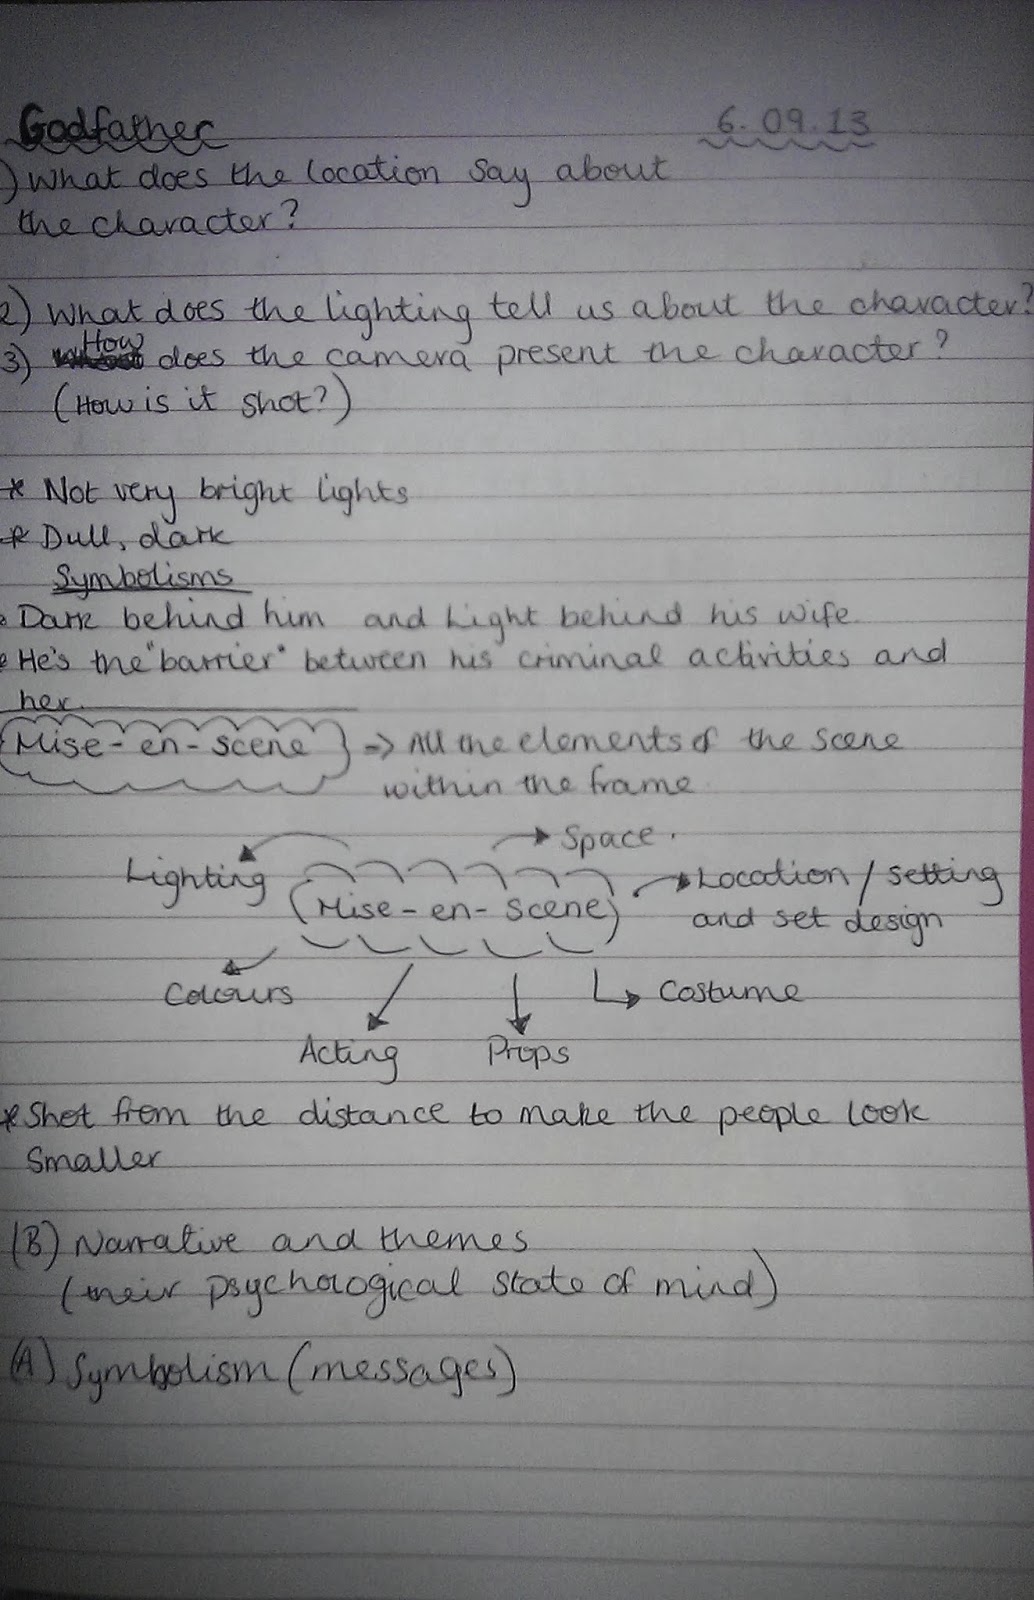 Godfather 6.09.13
1) What does the location say about
the character?
2) What does the lighting tell us about the character?
3) How does the camera present the character?
(How is it shot?)
* Not very bright lights
* Dull, dark
Symbolisms
• Dark behind him and Light behind his wife.
• He's the "barrier" between his criminal activities and
her.
Mise-en-scene => All the elements of the scene
within the frame
Space.
Lighting
Location / setting
Mise-en-scene
and set design
Colours
Costume
Acting
Props
* Shot from the distance to make the people look
smaller
(B) Narrative and themes
(their psychological state of mind)
(A) Symbolism (messages)